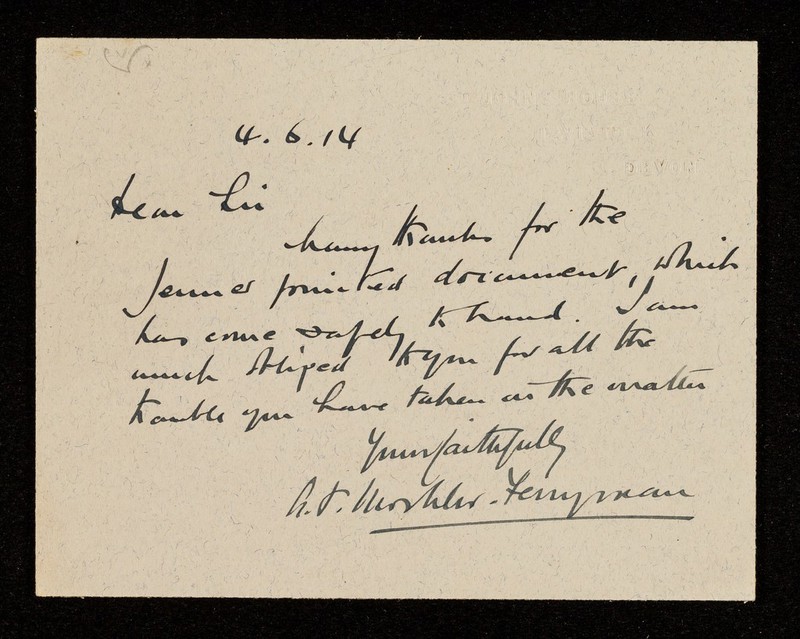 DEVON
4.6.14
Dear Sir
Many thanks for the
Jenner printed document, which
has come safely to hand. I am
much obliged to you for all the
trouble you have taken in the matter
Yours faithfully
A.F. Mockler-Ferryman